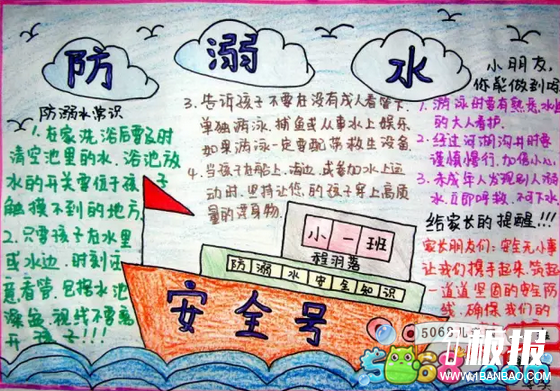 防 溺 水
防溺水常识
1.在家洗浴后要及时
清空池里的水.浴池放
水的开关要位于孩子
触摸不到的地方.
2.只要孩子在水里
或水边.时刻注
意看管.包括水池
澡盆.视线不要离
开孩子!!!
3.告诉孩子不要在没有成人看管下.
单独游泳.捕鱼或从事水上娱乐.
如果游泳一定要配带救生设备.
4.当孩子在船上.海边.或参加水上运
动时.坚持让您的孩子穿上高质
量的浮身物.
小朋友,
你能做到吗
1.游泳时要有熟悉水性
的大人看护.
2.经过河湖沟井时要
谨慎慢行.加倍小心.
3.未成年人发现别人溺
水.立即呼救.不可下水.
给家长的提醒!!!
家长朋友们:安全无小事
让我们携手起来.筑起
一道道坚固的安全防
线.确保我们的
小一班
程羽落
防溺水安全知识
安全号
5068儿
板报
WWW.1BANBAO.COM